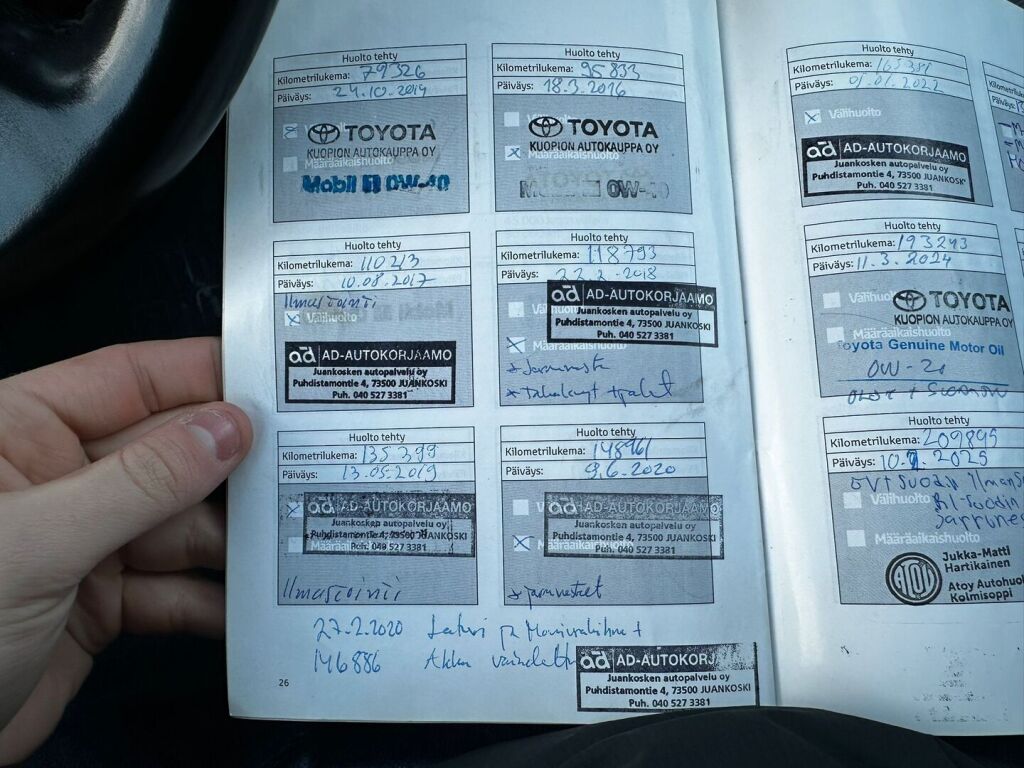 Huolto tehty
Kilometrilukema: 79326
Päiväys: 24.10.2014
TOYOTA
KUOPION AUTOKAUPPA OY
Määräaikaishuolto
Mobil 1 0W-40
Huolto tehty
Kilometrilukema: 95833
Päiväys: 18.3.2016
TOYOTA
KUOPION AUTOKAUPPA OY
Määräaikaishuolto
Mobil 1 0W-40
Huolto tehty
Kilometrilukema: 110213
Päiväys: 10.08.2017
Ilmastointi
Välihuolto
ad AD-AUTOKORJAAMO
Juankosken autopalvelu oy
Puhdistamontie 4, 73500 JUANKOSKI
Puh. 040 527 3381
Huolto tehty
Kilometrilukema: 118793
Päiväys: 22.2.2018
ad AD-AUTOKORJAAMO
Juankosken autopalvelu oy
Puhdistamontie 4, 73500 JUANKOSKI
Puh. 040 527 3381
* Jarruneste
Huolto tehty
Kilometrilukema: 135399
Päiväys: 13.05.2019
ad AD-AUTOKORJAAMO
Juankosken autopalvelu oy
Puhdistamontie 4, 73500 JUANKOSKI
Puh. 040 527 3381
Ilmastointi
Huolto tehty
Kilometrilukema: 148961
Päiväys: 9.6.2020
ad AD-AUTOKORJAAMO
Juankosken autopalvelu oy
Määräaikaishuolto
Puhdistamontie 4, 73500 JUANKOSKI
Puh. 040 527 3381
* jarrunesteet
27.2.2020 Laturi ja Moniurahihna +
146886 Akku vaihdettu
ad AD-AUTOKORJ
Juankosken autopalvelu oy
Puhdistamontie 4, 73500 JUANKOSKI
Puh. 040 527 3381
26
Huolto tehty
Kilometrilukema: 163381
Päiväys: 01.2022
Välihuolto
ad AD-AUTOKORJAAMO
Juankosken autopalvelu oy
Puhdistamontie 4, 73500 JUANKOSK
Puh. 040 527 3381
Huolto tehty
Kilometrilukema: 193243
Päiväys: 11.3.2024
Välihuol
TOYOTA
KUOPION AUTOKAUPPA OY
Määräaikaishuolto
Toyota Genuine Motor Oil
0W-20
Huolto tehty
Kilometrilukema: 209895
Päiväys: 10.9.2025
Välihuolto
Määräaikaishuolto
ATOY
Jukka-Matti
Hartikainen
Atoy Autohuol
Kolmisoppi